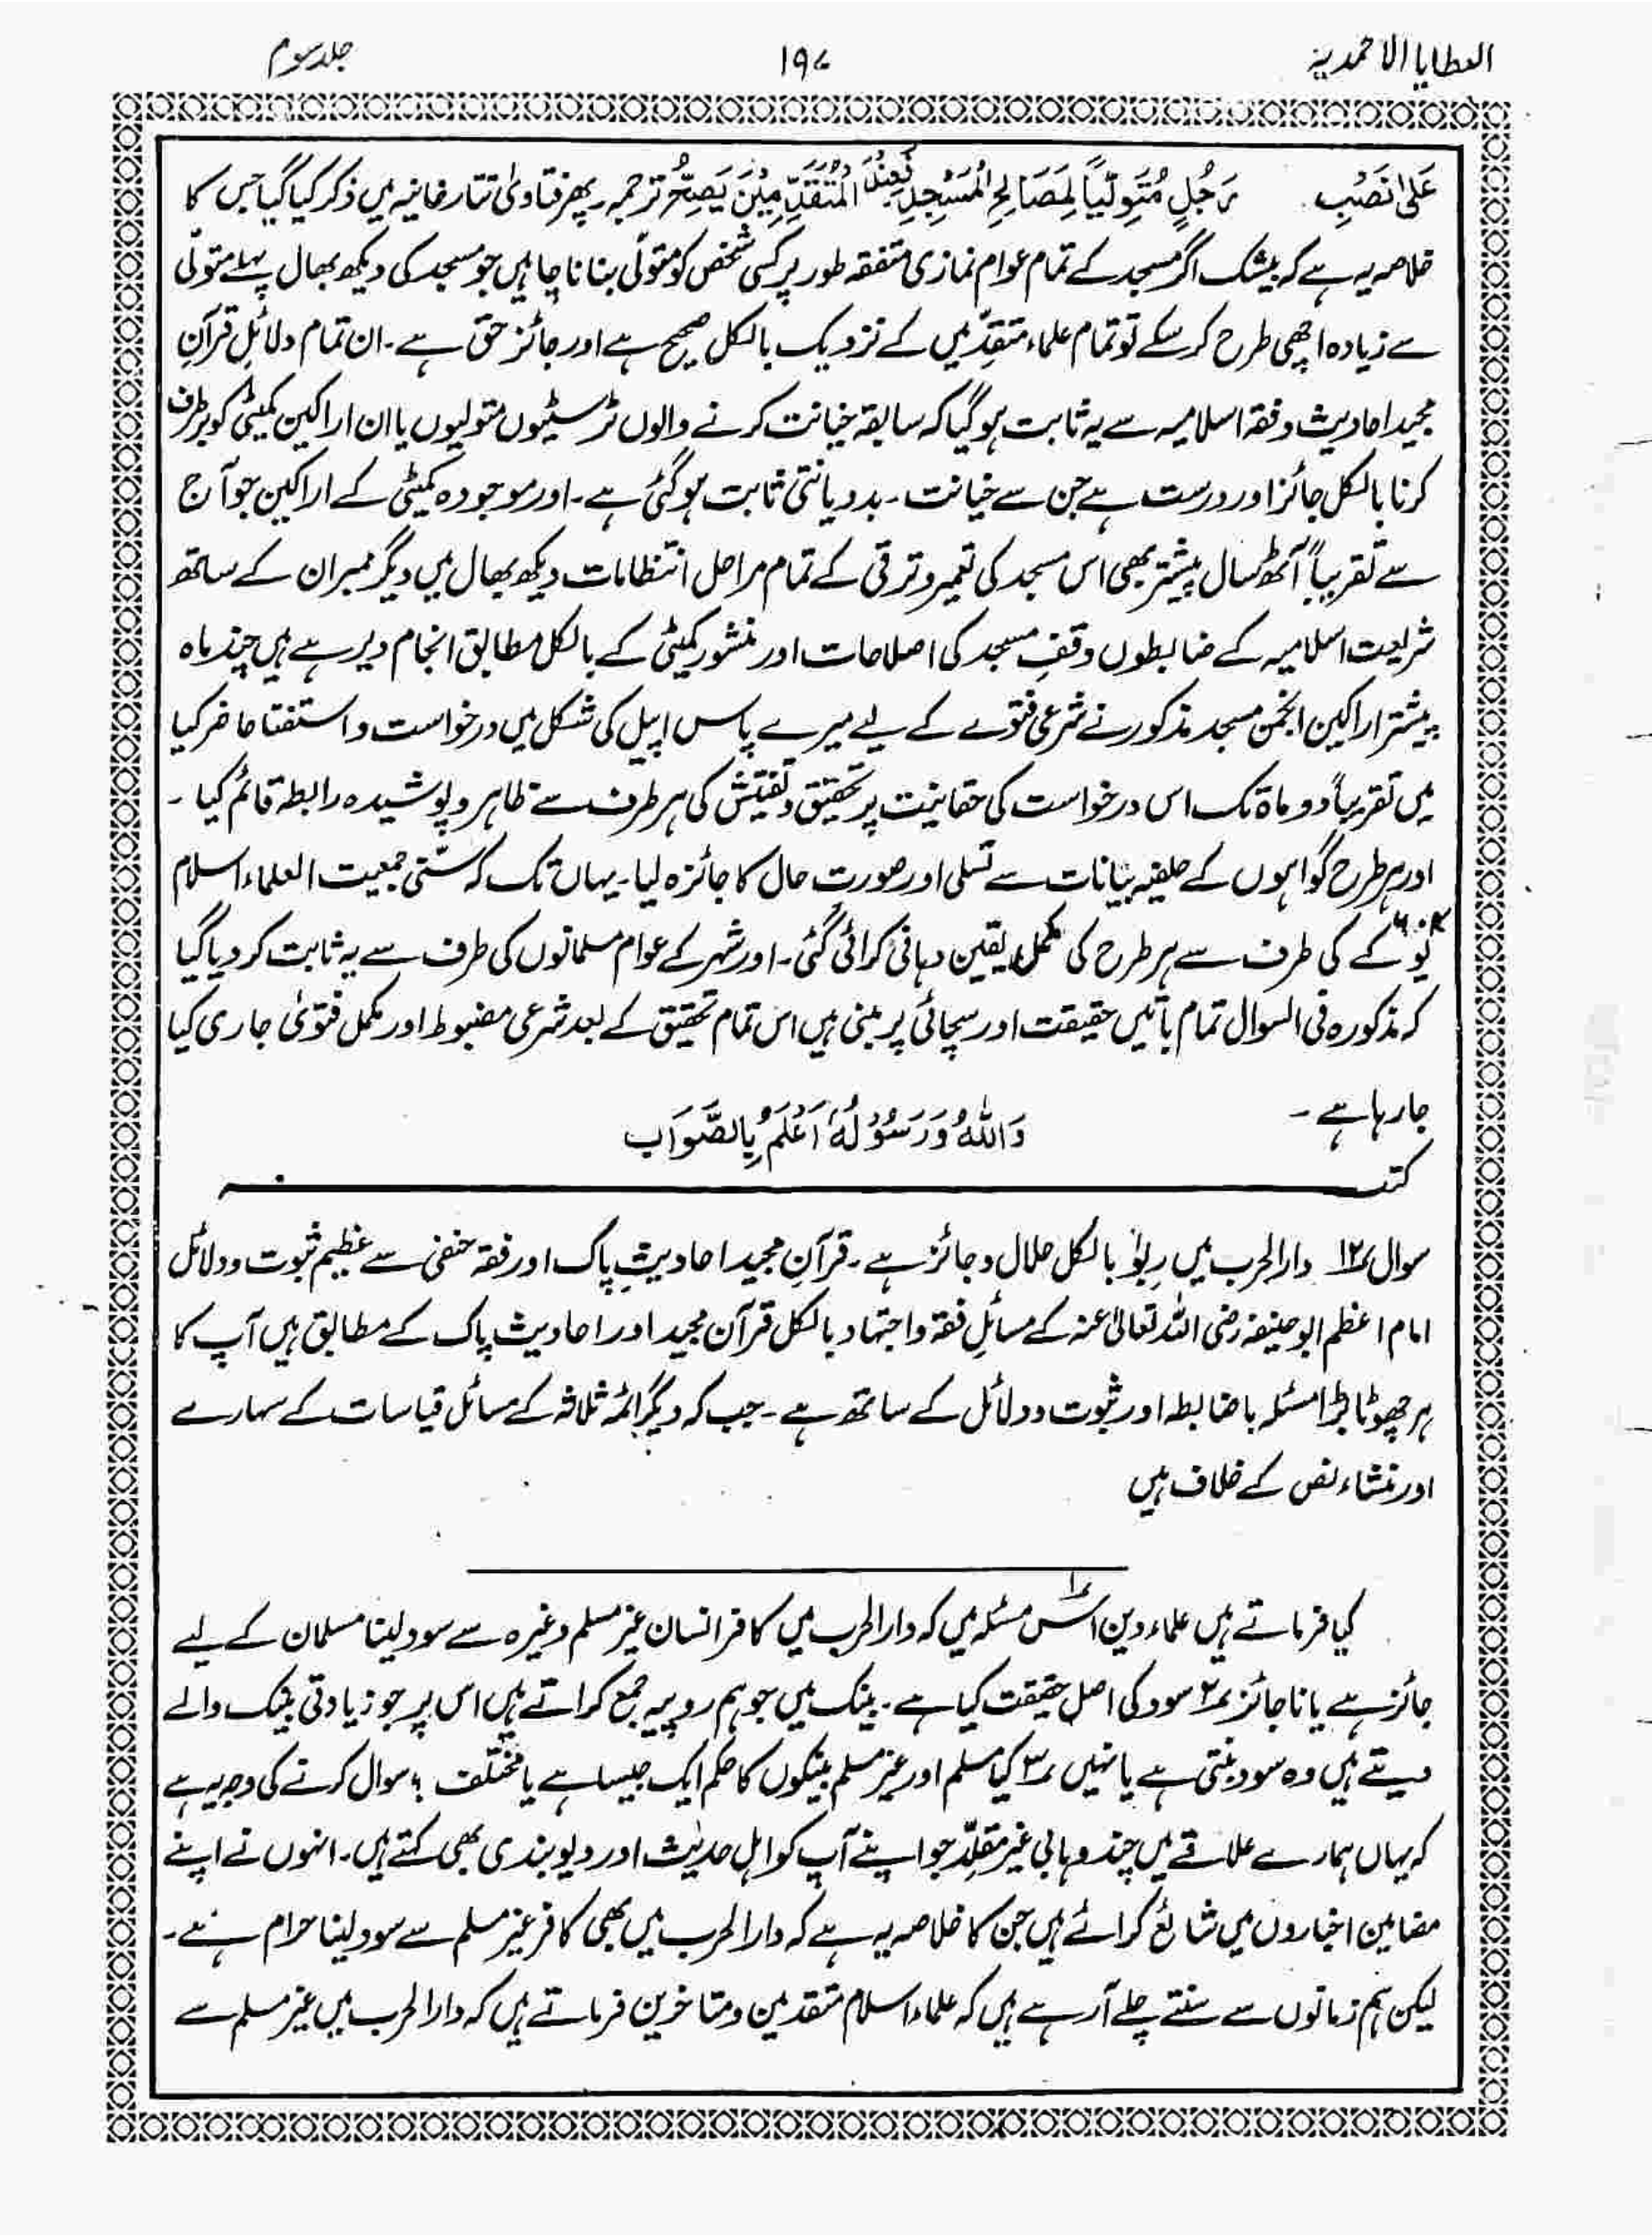 العطایا الاحمدیہ
۱۹۷
جلد سوم
عَلیٰ نَصْبِ رَجُلٍ مُتَوَلِّیًا لِمَصَالِحِ الْمَسْجِدِ فَعِنْدَ الْمُتَقَدِّمِیْنَ یَصِحُّ ترجمہ۔ پھر فتاویٰ تتارخانیہ میں ذکر کیا گیا جس کا
خلاصہ یہ ہے کہ بیشک اگر مسجد کے تمام عوام نمازی متفقہ طور پر کسی شخص کو متولّی بنانا چاہیں جو مسجد کی دیکھ بھال پہلے متولّی
سے زیادہ اچھی طرح کر سکے تو تمام علماء متقدّمیں کے نزدیک بالکل صحیح ہے اور جائز حق ہے۔ ان تمام دلائلِ قرآنِ
مجید احادیث و فقہ اسلامیہ سے یہ ثابت ہو گیا کہ سابقہ خیانت کرنے والوں ٹرسٹیوں متولیوں یا ان اراکین کمیٹی کو برطرف
کرنا بالکل جائز اور درست ہے جن سے خیانت۔ بددیانتی ثابت ہو گئی ہے۔ اور موجودہ کمیٹی کے اراکین جو آج
سے تقریباً آٹھ سال پیشتر بھی اس مسجد کی تعمیر و ترقی کے تمام مراحل انتظامات دیکھ بھال میں دیگر ممبران کے ساتھ
شریعت اسلامیہ کے ضابطوں وقفِ مسجد کی اصلاحات اور منشور کمیٹی کے بالکل مطابق انجام دیر ہے ہیں چند ماہ
پیشتر اراکین انجمن مسجد مذکور نے شرعی فتوے کے لیے میرے پاس اپیل کی شکل میں درخواست و استفتا حاضر کیا
میں تقریباً دو ماہ تک اس درخواست کی حقانیت پر تحقیق و تفتیش کی ہر طرف سے ظاہر و پوشیدہ رابطہ قائم کیا۔
اور ہر طرح گواہوں کے حلفیہ بیانات سے تسلی اور صورت حال کا جائزہ لیا۔ یہاں تک کہ سنّی جمعیت العلماء اسلام
یو کے کی طرف سے ہر طرح کی مکمل یقین دہانی کرائی گئی۔ اور شہر کے عوام مسلمانوں کی طرف سے یہ ثابت کر دیا گیا
کہ مذکورہ فی السوال تمام باتیں حقیقت اور سچائی پر مبنی ہیں اس تمام تحقیق کے بعد شرعی مضبوط اور مکمل فتویٰ جاری کیا
جا رہا ہے۔
وَاللّٰہُ وَرَسُوْلُہٗ اَعْلَمُ بِالصَّوَاب
کتبہ
سوال ۱۲ دارالحرب میں رِبوٰ بالکل حلال و جائز ہے۔ قرآنِ مجید احادیثِ پاک اور فقہ حنفی سے عظیم ثبوت و دلائل
امام اعظم ابو حنیفہ رضی اللہ تعالیٰ عنہ کے مسائلِ فقہ و اجتہاد بالکل قرآن مجید اور احادیث پاک کے مطابق ہیں آپ کا
ہر چھوٹا بڑا مسئلہ باضابطہ اور ثبوت و دلائل کے ساتھ ہے۔ جب کہ دیگر ائمہ ثلاثہ کے مسائل قیاسات کے سہارے
اور منشاء نص کے خلاف ہیں
کیا فرماتے ہیں علماء دین اس مسئلہ میں ۱ کہ دارالحرب میں کافر انسان غیر مسلم وغیرہ سے سود لینا مسلمان کے لیے
جائز ہے یا ناجائز ۲ سود کی اصل حقیقت کیا ہے۔ بینک میں جو ہم روپیہ جمع کراتے ہیں اس پر جو زیادتی بینک والے
دیتے ہیں وہ سود بنتی ہے یا نہیں ۳ کیا مسلم اور غیر مسلم بینکوں کا حکم ایک جیسا ہے یا مختلف؟ سوال کرنے کی وجہ یہ ہے
کہ یہاں ہمارے علاقے میں چند وہابی غیر مقلّد جو اپنے آپ کو اہل حدیث اور دیوبندی بھی کہتے ہیں۔ انہوں نے اپنے
مضامین اخباروں میں شائع کرائے ہیں جن کا خلاصہ یہ ہے کہ دارالحرب میں بھی کافر غیر مسلم سے سود لینا حرام ہے۔
لیکن ہم زمانوں سے سنتے چلے آ رہے ہیں کہ علماء اسلام متقدمین و متاخرین فرماتے ہیں کہ دارالحرب میں غیر مسلم سے